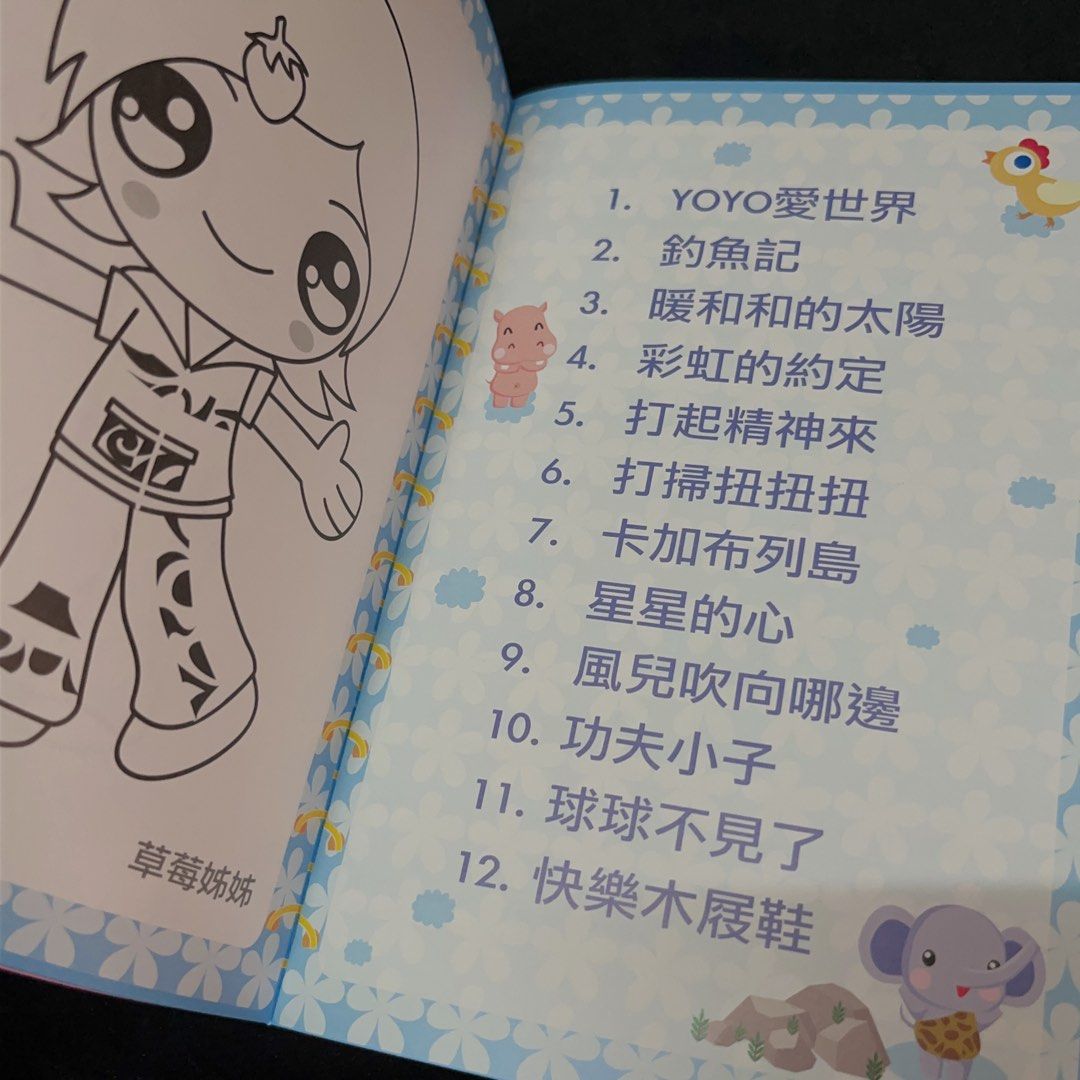 草莓姊姊
1. YOYO愛世界
2. 釣魚記
3. 暖和和的太陽
4. 彩虹的約定
5. 打起精神來
6. 打掃扭扭扭
7. 卡加布列島
8. 星星的心
9. 風兒吹向哪邊
10. 功夫小子
11. 球球不見了
12. 快樂木屐鞋